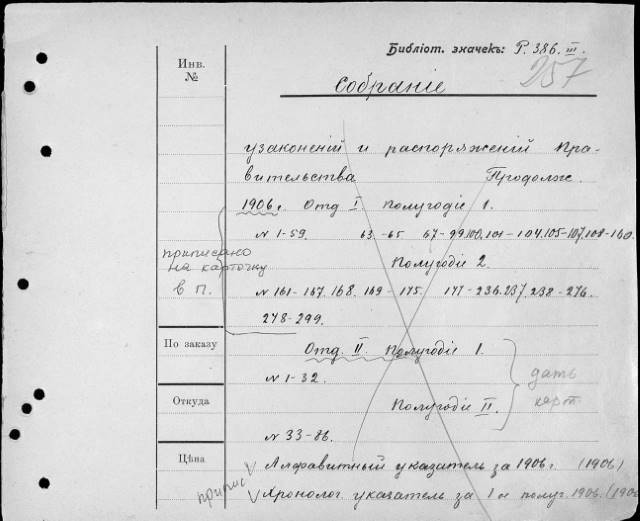 Библіот. значекъ: Р. 386. III.
257
Инв.
№
Собраніе
узаконеній и распоряженій Пра-
вительства Продолж.
1906 г. Отд I. Полугодіе 1.
N 1-59. 63-65 67-99.100.101-104.105-107.108-160.
приписано
на карточку
в п.
Полугодіе 2.
N 161-167. 168. 169-175. 177-236.237.238-276.
278-299.
По заказу
Отд. II. Полугодіе 1.
N 1-32.
дать
карт.
Откуда
Полугодіе II.
N 33-86.
Цѣна
V Алфавитный указатель за 1906 г. (1906)
припис V Хронолог. указатель за 1 и полуг. 1906. (190